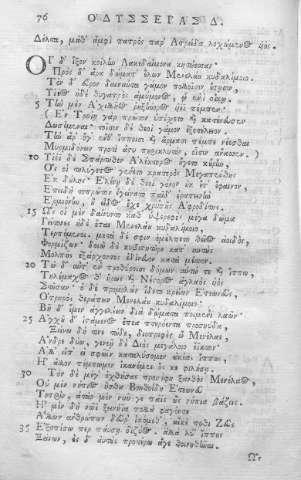 76 ΟΔΥΣΣΕΙΑΣ Δ.
Οἱ δ' ἷξον κοίλην Λακεδαίμονα κητώεσσαν·
Πρὸς δ' ἄρα δώματ' ἔλων Μενελάου κυδαλίμοιο.
Τὸν δ' εὗρον δαινύντα γάμον πολλοῖσιν ἔτῃσιν,
Υἱέος ἠδὲ θυγατρὸς ἀμύμονος, ᾧ ἐνὶ οἴκῳ.
5 Τὴν μὲν Ἀχιλλῆος ῥηξήνορος υἱέϊ πέμπεν·
Ἐν Τροίῃ γὰρ πρῶτον ὑπέσχετο καὶ κατένευσεν
Δωσέμεναι· τοῖσιν δὲ θεοὶ γάμον ἐξετέλειον.
Τὴν ἄρ' ὅγ' ἔνθ' ἵπποισι καὶ ἅρμασι πέμπε νέεσθαι
Μυρμιδόνων προτὶ ἄστυ
10 Υἱέϊ δὲ Σπάρτηθεν Ἀλέκτορος ἤγετο κούρην,
Ὅς οἱ τηλύγετος γένετο κρατερὸς Μεγαπένθης
Ἐκ δούλης· Ἑλένῃ δὲ θεοὶ γόνον οὐκ ἔτ' ἔφαινον,
Ἑρμιόνην, ἣ εἶδος ἔχε χρυσῆς Ἀφροδίτης.
15 Ὣς οἱ μὲν δαίνυντο καθ' ὑψερεφὲς μέγα δῶμα
Γείτονες ἠδὲ ἔται Μενελάου κυδαλίμοιο,
Τερπόμενοι· μετὰ δέ σφιν ἐμέλπετο θεῖος ἀοιδὸς,
Φορμίζων· δοιὼ δὲ κυβιστητῆρε κατ' αὐτοὺς
Μολπῆς ἐξάρχοντες ἐδίνευον κατὰ μέσσους.
20 Τὼ δ' αὖτ' ἐν προθύροισι δόμων αὐτώ τε καὶ ἵππω,
Τηλέμαχός θ' ἥρως καὶ Νέστορος ἀγλαὸς υἱὸς
Στῆσαν· ὁ δὲ προμολὼν ἴδετο κρείων Ἐτεωνεὺς,
Ὀτρηρὸς θεράπων Μενελάου κυδαλίμοιο·
Βῆ δ' ἴμεν ἀγγελέων διὰ δώματα ποιμένι λαῶν·
25 Ἀγχοῦ δ' ἱστάμενος ἔπεα πτερόεντα προσηύδα,
Ξείνω δή τινε τώδε, διοτρεφὲς ὦ Μενέλαε,
Ἄνδρε δύω, γενεῇ δὲ Διὸς μεγάλοιο ἔϊκτον.
Ἀλλ' εἴπ' εἰ σφῶϊν καταλύσομεν ὠκέας ἵππους,
Ἢ ἄλλον πέμπωμεν ἱκανέμεν ὅς κε φιλήσῃ.
30 Τὸν δὲ μέγ' ὀχθήσας προσέφη ξανθὸς Μενέλαος,
Οὐ μὲν νήπιος ἦσθα Βοηθοΐδη Ἐτεωνεῦ
Τοπρίν, ἀτὰρ μὲν νῦν γε πάϊς ὣς νήπια βάζεις.
Ἦ μὲν δὴ νῶϊ ξεινήϊα πολλὰ φαγόντε
Ἄλλων ἀνθρώπων δεῦρ' ἱκόμεθ', αἴκε ποθι Ζεὺς
35 Ἐξοπίσω περ παύσῃ ὀϊζύος. ἀλλὰ λύ' ἵππους
Ξείνων, ἐς δ' αὐτοὺς προτέρω ἄγε θοινηθῆναι.